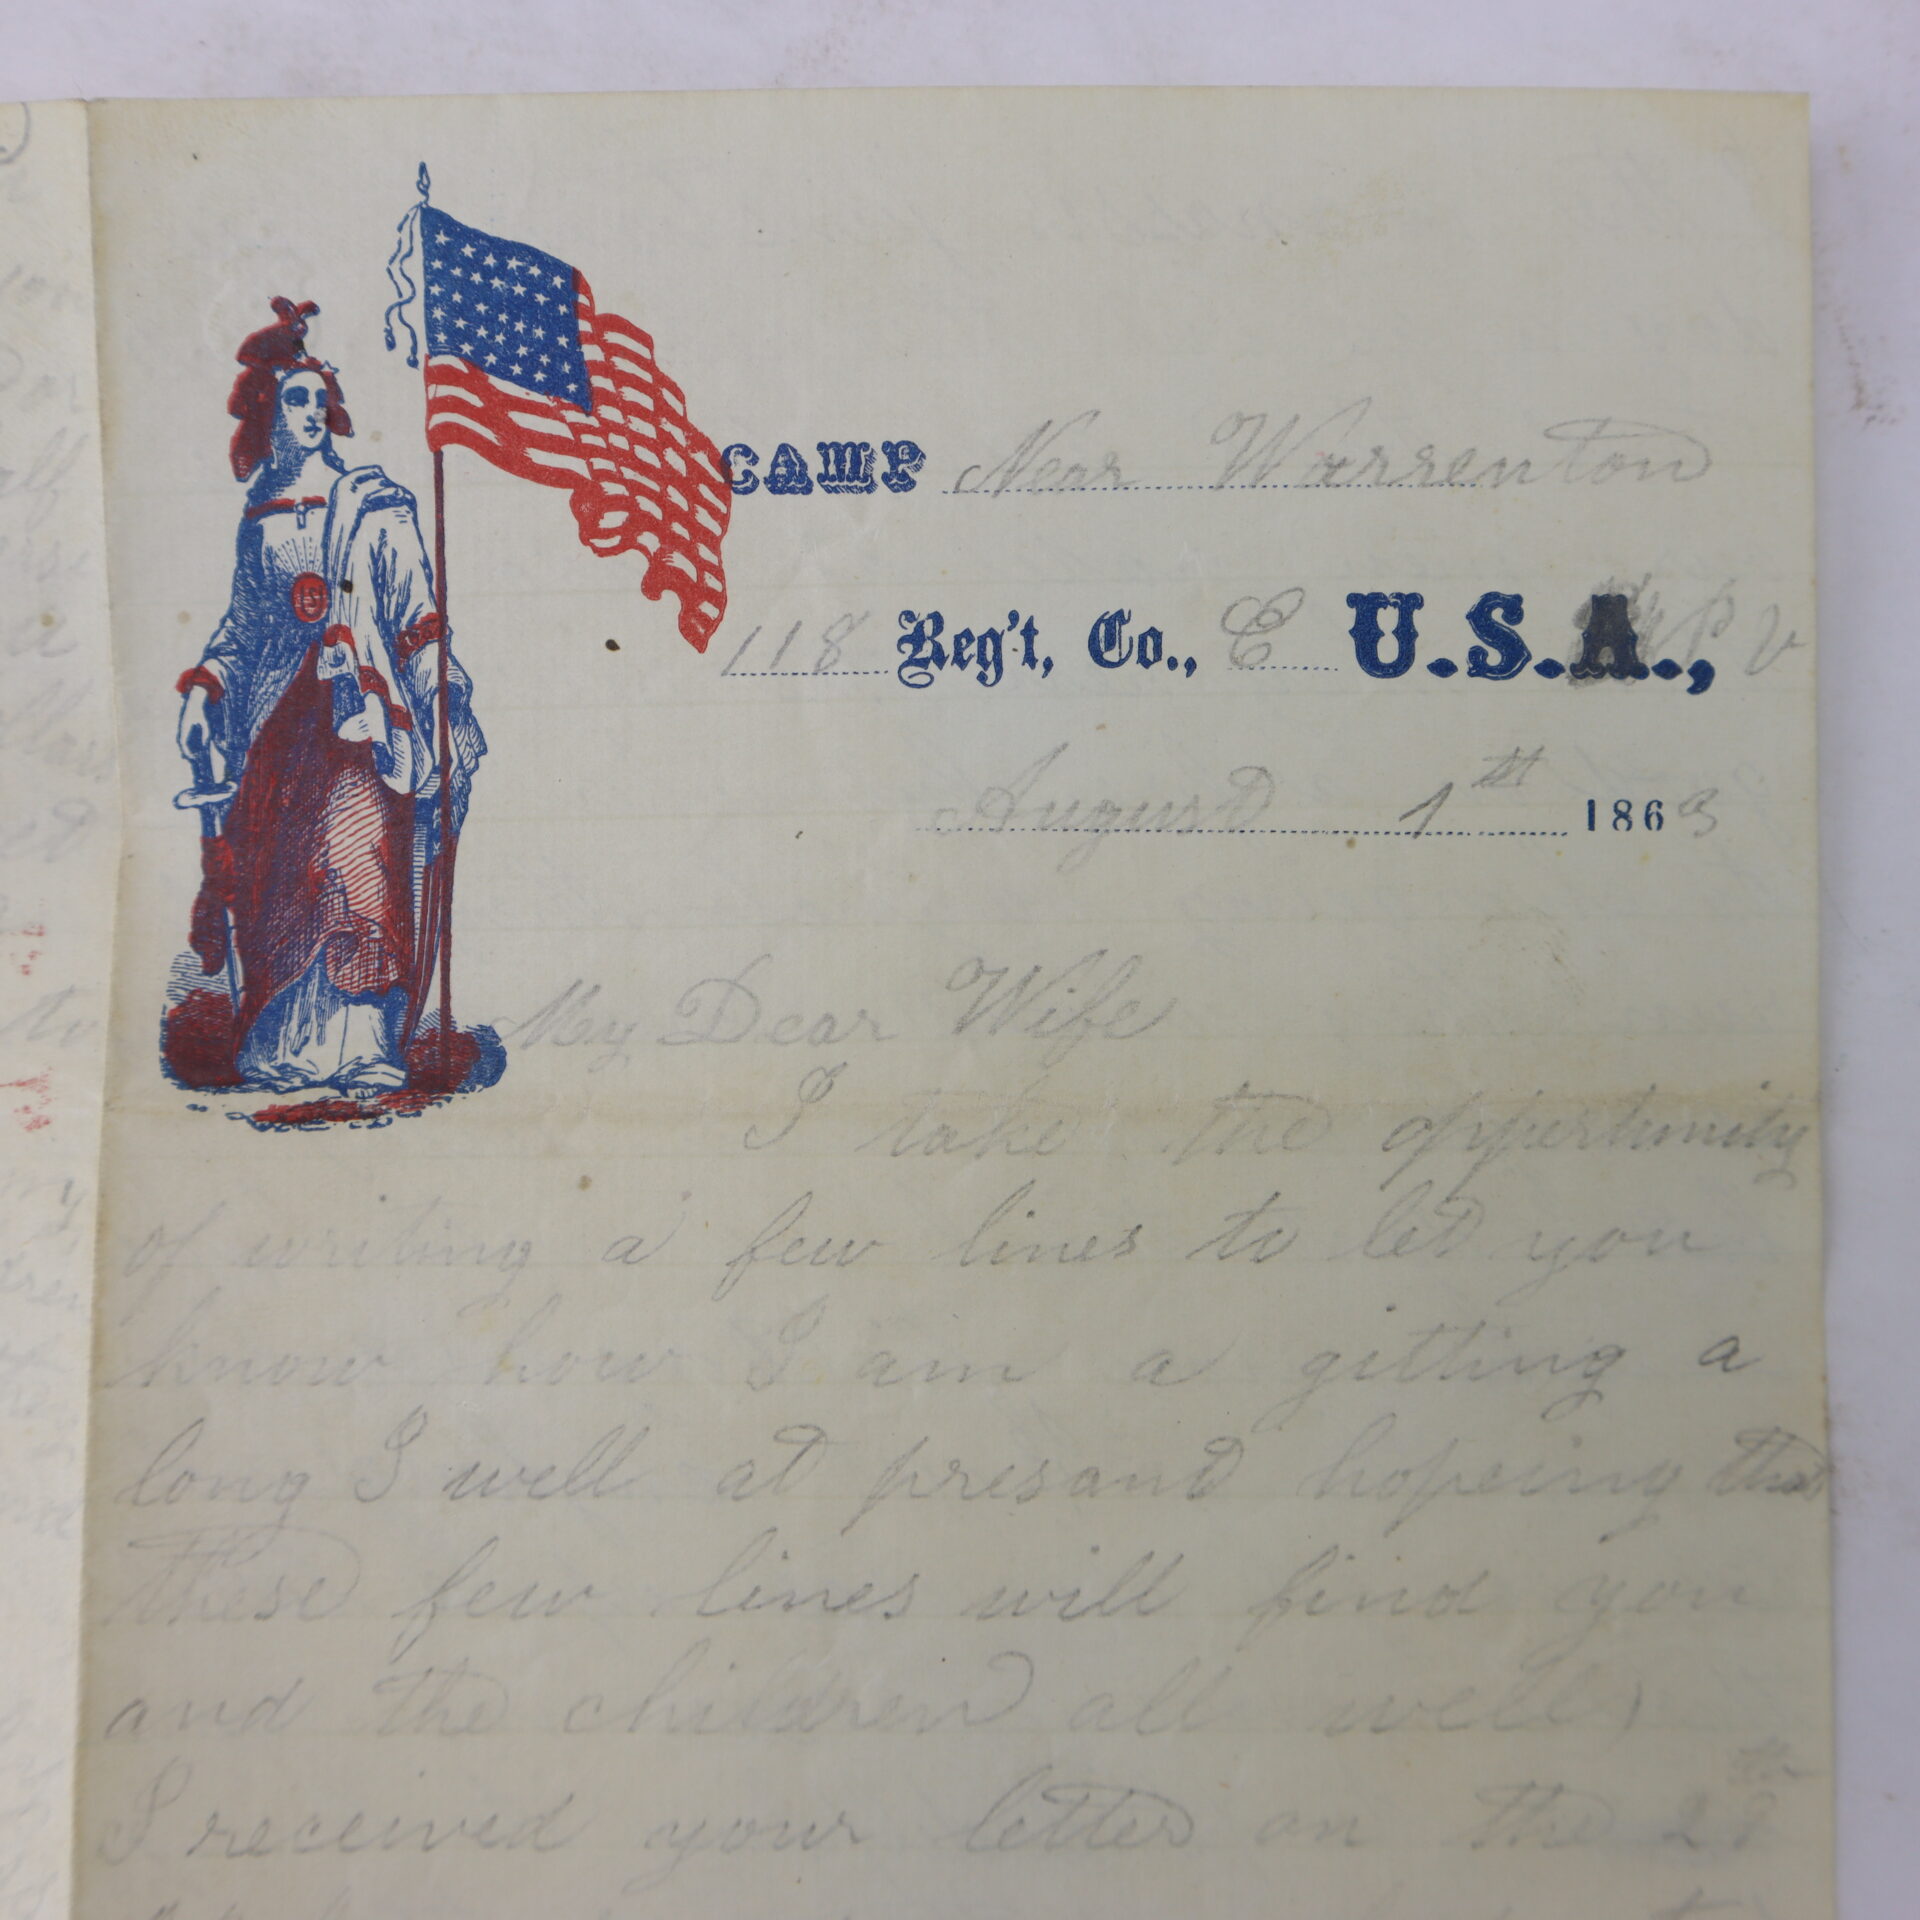 CAMP Near Warrenton
118 Reg't, Co., E U.S.A., P V
August 1th 1863
My Dear Wife
I take the oppertunity
of writing a few lines to let you
know how I am a gitting a
long I well at presant hopeing that
these few lines will find you
and the children all well,
I received your letter on the 28th